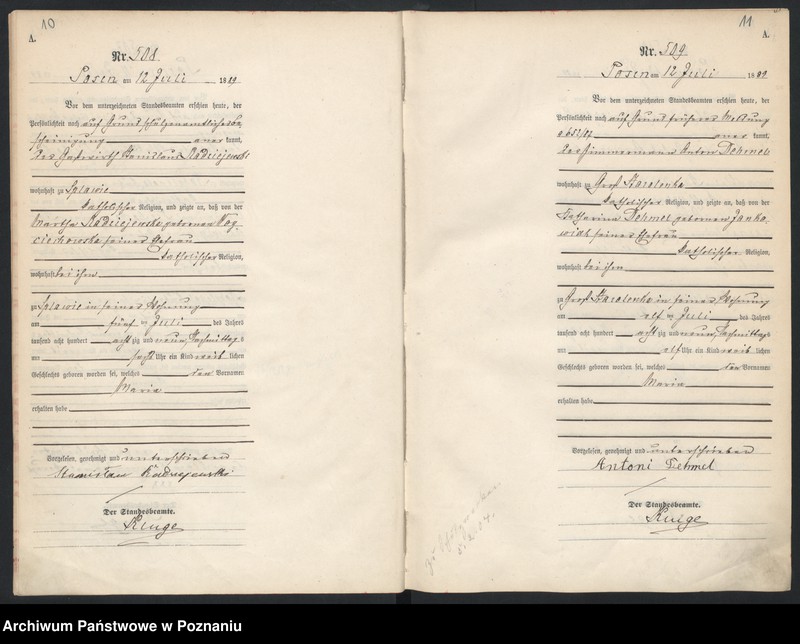 10
A.
Nr. 508
Posen am 12 Juli 1889
Vor dem unterzeichneten Standesbeamten erschien heute, der
Persönlichkeit nach auf Grund
scheinigung aner kannt,
der Gastwirth Stanislaus Radziejewski
wohnhaft zu Splawie
katholischer Religion, und zeigte an, daß von der
Martha Radziejewska gebornen Woj-
ciechowska seiner Ehefrau
katholischer Religion,
wohnhaft bei ihm
zu Splawie in seiner Wohnung
am fünf ten Juli des Jahres
tausend acht hundert acht zig und neun, Nachmittags
um Uhr ein Kind weib lichen
Geschlechts geboren worden sei, welches den Vornamen
Maria
erhalten habe
Vorgelesen, genehmigt und unterschrieben
Stanisław Radziejewski
Der Standesbeamte.
Kruge
11
A.
Nr. 509
Posen am 12 Juli 1889
Vor dem unterzeichneten Standesbeamten erschien heute, der
Persönlichkeit nach auf Grund früherer Meldung
aner kannt,
der Zimmermann Anton Dehmel
wohnhaft zu Groß Starolenka
katholischer Religion, und zeigte an, daß von der
Katharina Dehmel gebornen Janko-
wiak seiner Ehefrau
katholischer Religion,
wohnhaft bei ihm
zu Groß Starolenka in seiner Wohnung
am elf ten Juli des Jahres
tausend acht hundert acht zig und neun, Nachmittags
um elf Uhr ein Kind weib lichen
Geschlechts geboren worden sei, welches den Vornamen
Maria
erhalten habe
Vorgelesen, genehmigt und unterschrieben
Antoni Dehmel
Der Standesbeamte.
Kruge
Archiwum Państwowe w Poznaniu